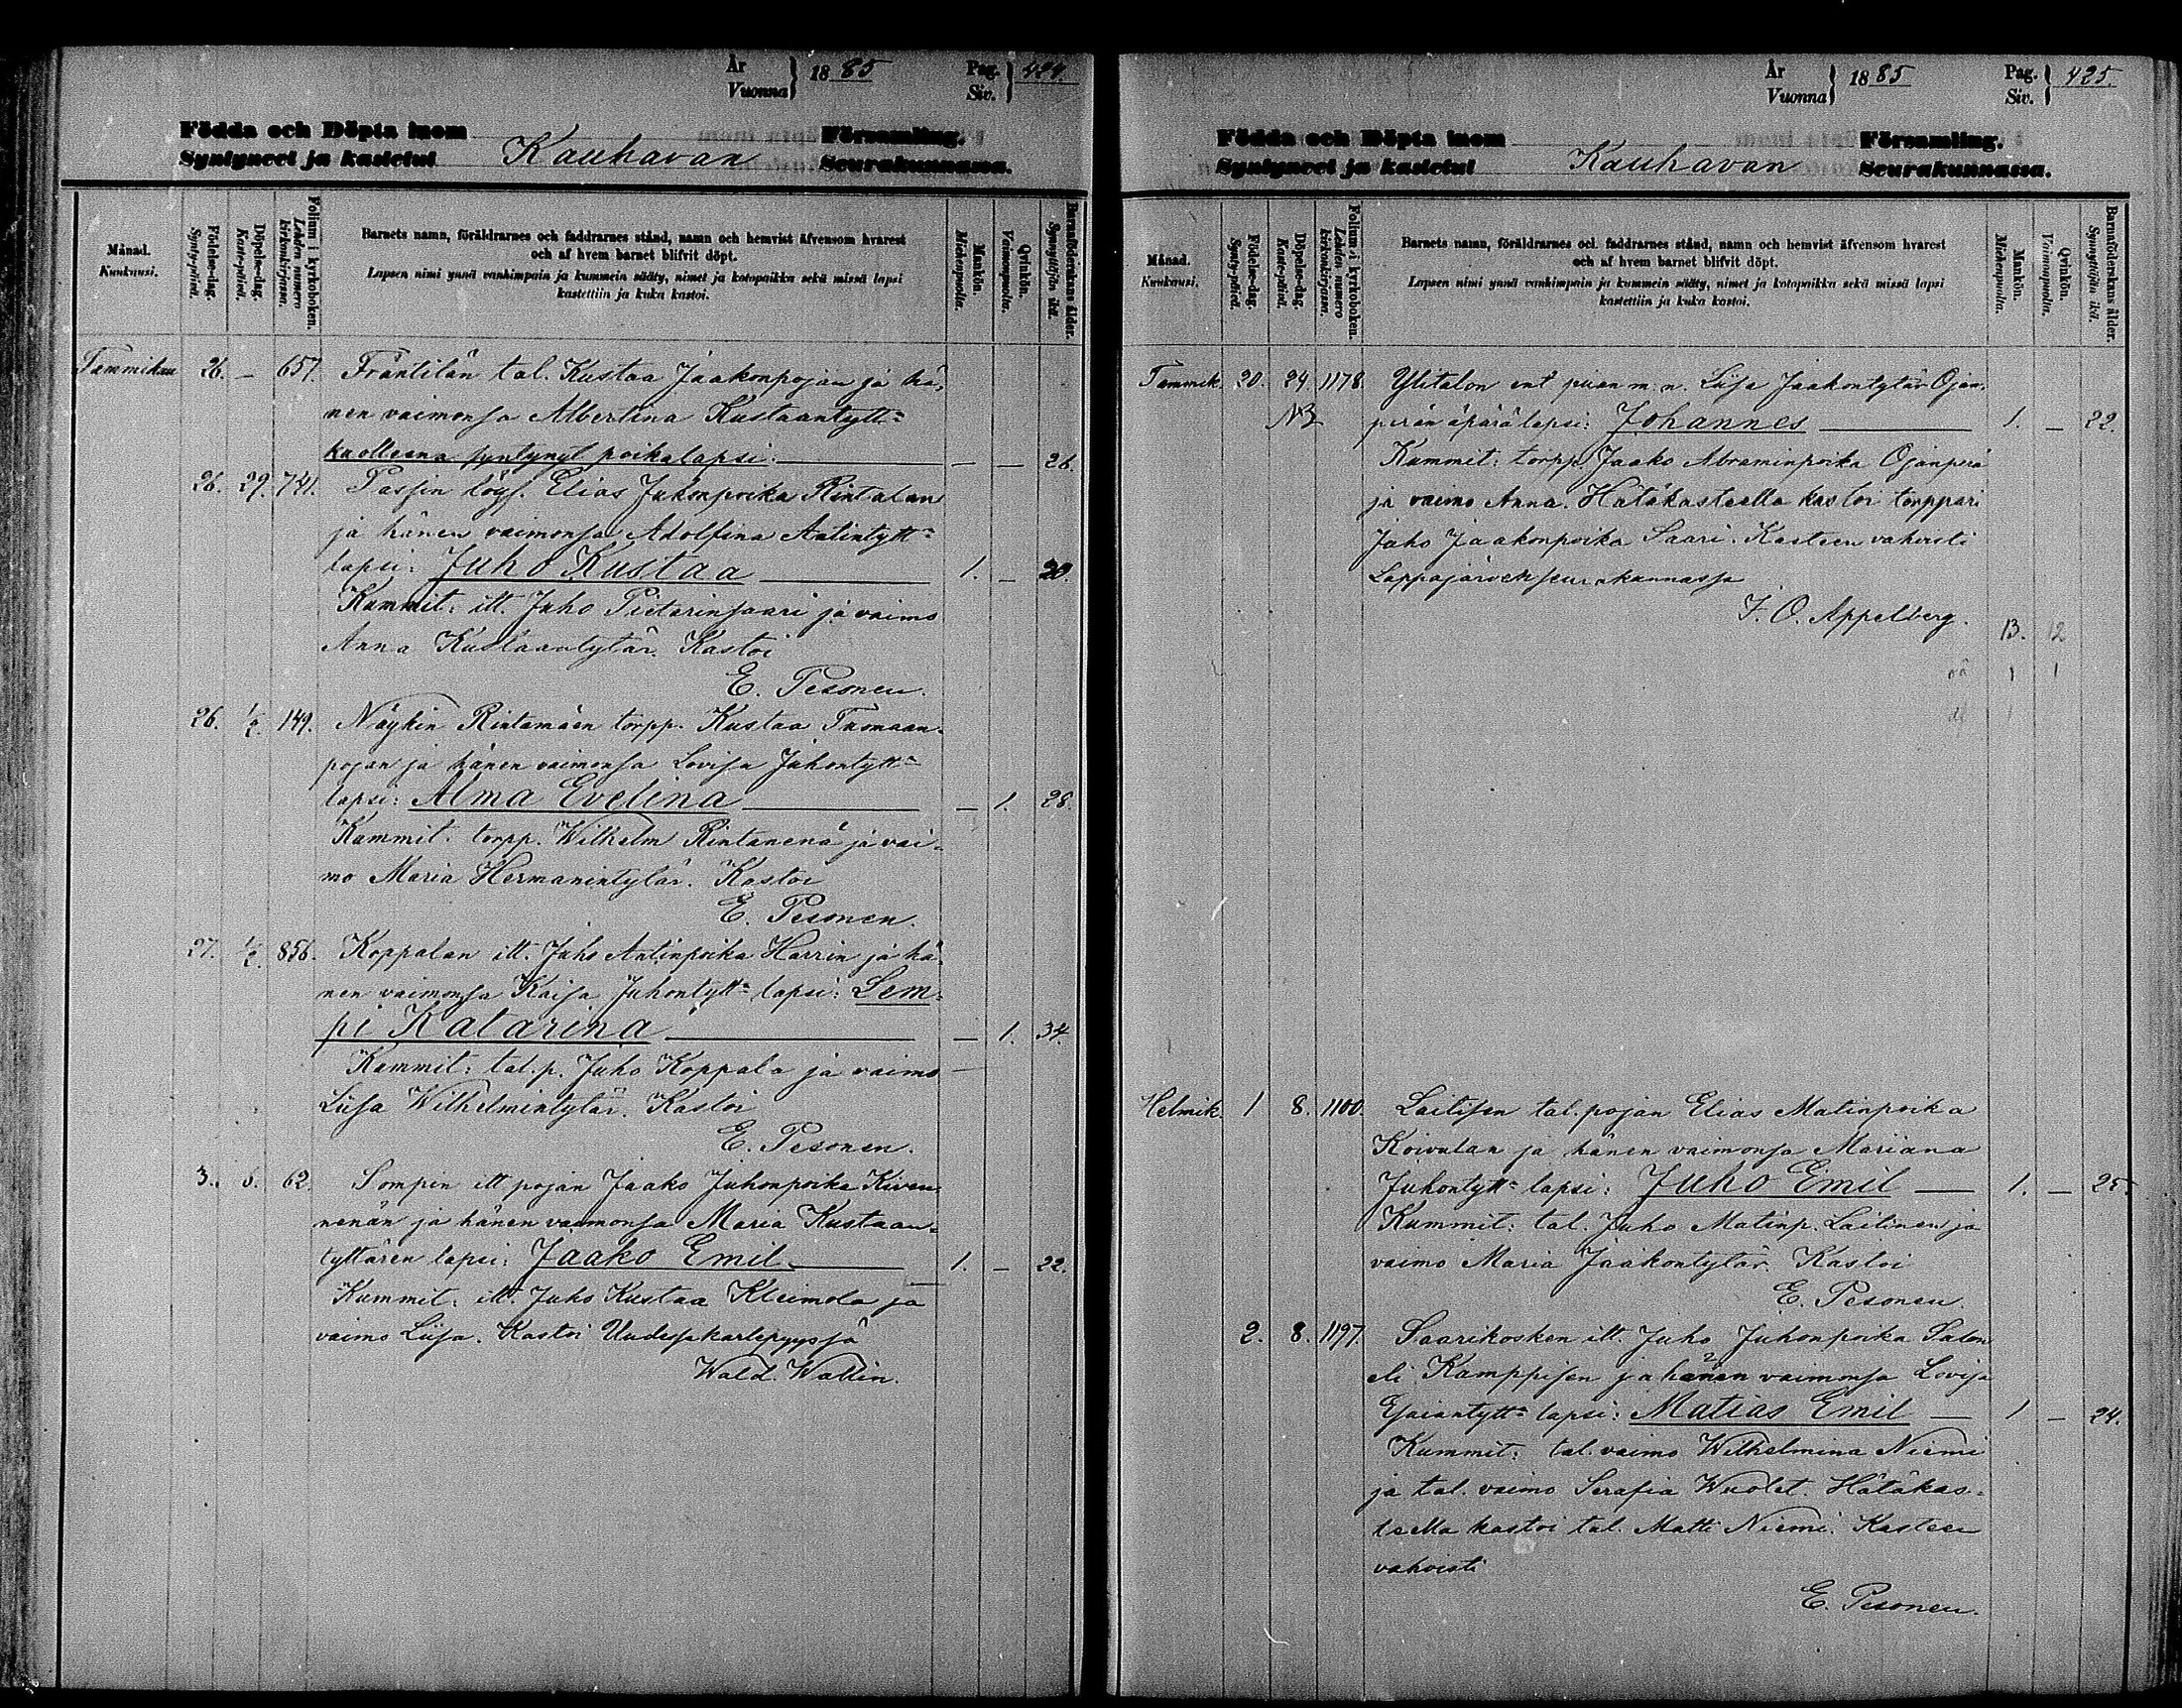 År
Vuonna } 1885 Pag.
Siv. } 424.
Födda och Döpta inom Församling.
Syntyneet ja kastetut Kauhavan Seurakunnassa.
Månad.
Kuukausi.
Födelse-dag.
Synty-päivä.
Döpelse-dag.
Kaste-päivä.
Folium i kyrkoboken.
Lehden numero
kirkonkirjassa.
Barnets namn, föräldrarnes och faddrarnes stånd, namn och hemvist äfvensom hvarest
och af hvem barnet blifvit döpt.
Lapsen nimi ynnä vanhimpain ja kummein sääty, nimet ja kotopaikka sekä missä lapsi
kastettiin ja kuka kastoi.
Mankön.
Miehenpuolia.
Qvinkön.
Vaimonpuolia.
Barnaföderskans ålder.
Synnyttäjän ikä.
Tammikuu 26. — 657. Fräntilän tal. Kustaa Jaakonpojan ja hä-
nen vaimonsa Albertina Kustaantytt:
kuolleena syntynyt poikalapsi. — — 26.
26. 29. 741. Passin löys. Elias Juhonpoika Rintalan
ja hänen vaimonsa Adolfina Antintytt:
lapsi: Juho Kustaa 1. — 20.
Kummit: itt. Juho Pietarinsaari ja vaimo
Anna Kustaantytär. Kastoi
E. Pesonen.
26. 1/2. 149. Näykin Rintamäen torpp. Kustaa Tuomaan-
pojan ja hänen vaimonsa Lovisa Juhontytt:
lapsi: Alma Evelina — 1. 28.
Kummit: torpp. Wilhelm Rintanenä ja vai-
mo Maria Hermanintytär. Kastoi
E. Pesonen.
27. 1/2. 856. Koppalan itt. Juho Antinpoika Harrin ja hä-
nen vaimonsa Kaisa Juhontytt: lapsi: Lem-
pi Katarina — 1. 34.
Kummit: tal.p. Juho Koppala ja vaimo
Liisa Wilhelmintytär. Kastoi
E. Pesonen.
3. 6. 62. Sompin itt pojan Jaako Juhonpoika Kiven-
nenän ja hänen vaimonsa Maria Kustaan-
tyttären lapsi: Jaako Emil 1. — 22.
Kummit: itt. Juho Kustaa Kleimola ja
vaimo Liisa. Kastoi Uudessakarlepyyssä
Wald. Wallin.
År
Vuonna } 1885 Pag.
Siv. } 425.
Födda och Döpta inom Församling.
Syntyneet ja kastetut Kauhavan Seurakunnassa.
Månad.
Kuukausi.
Födelse-dag.
Synty-päivä.
Döpelse-dag.
Kaste-päivä.
Folium i kyrkoboken.
Lehden numero
kirkonkirjassa.
Barnets namn, föräldrarnes och faddrarnes stånd, namn och hemvist äfvensom hvarest
och af hvem barnet blifvit döpt.
Lapsen nimi ynnä vanhimpain ja kummein sääty, nimet ja kotopaikka sekä missä lapsi
kastettiin ja kuka kastoi.
Mankön.
Miehenpuolia.
Qvinkön.
Vaimonpuolia.
Barnaföderskans ålder.
Synnyttäjän ikä.
Tammik. 20. 24. 1178. Ylitalon ent piian m.n. Liisa Jaakontytär Ojan-
NB perän äpärä lapsi: Johannes 1. — 22.
Kummit: torpp. Jaako Abraminpoika Ojanperä
ja vaimo Anna. Hätäkasteella kastoi torppari
Juho Jaakonpoika Saari. Kasteen vahvisti
Lappajärven seurakunnassa
F. O. Appelberg.
13. 12
1 1
Helmik. 1 8. 1100. Laitisen tal. pojan Elias Matinpoika
Koivulan ja hänen vaimonsa Mariana
Juhontytt: lapsi: Juho Emil 1. — 25.
Kummit: tal. Juho Matinp. Laitinen ja
vaimo Maria Jaakontytär. Kastoi
E. Pesonen.
2. 8. 1197. Saarikosken itt. Juho Juhonpoika Salon
eli Kamppisen ja hänen vaimonsa Lovisa
Esaiantytt: lapsi: Matias Emil 1 — 24.
Kummit: tal. vaimo Wilhelmina Niemi
ja tal. vaimo Serafia Wuolet. Hätäkas-
teella kastoi tal. Matti Niemi. Kasteen
vahvisti
E. Pesonen.